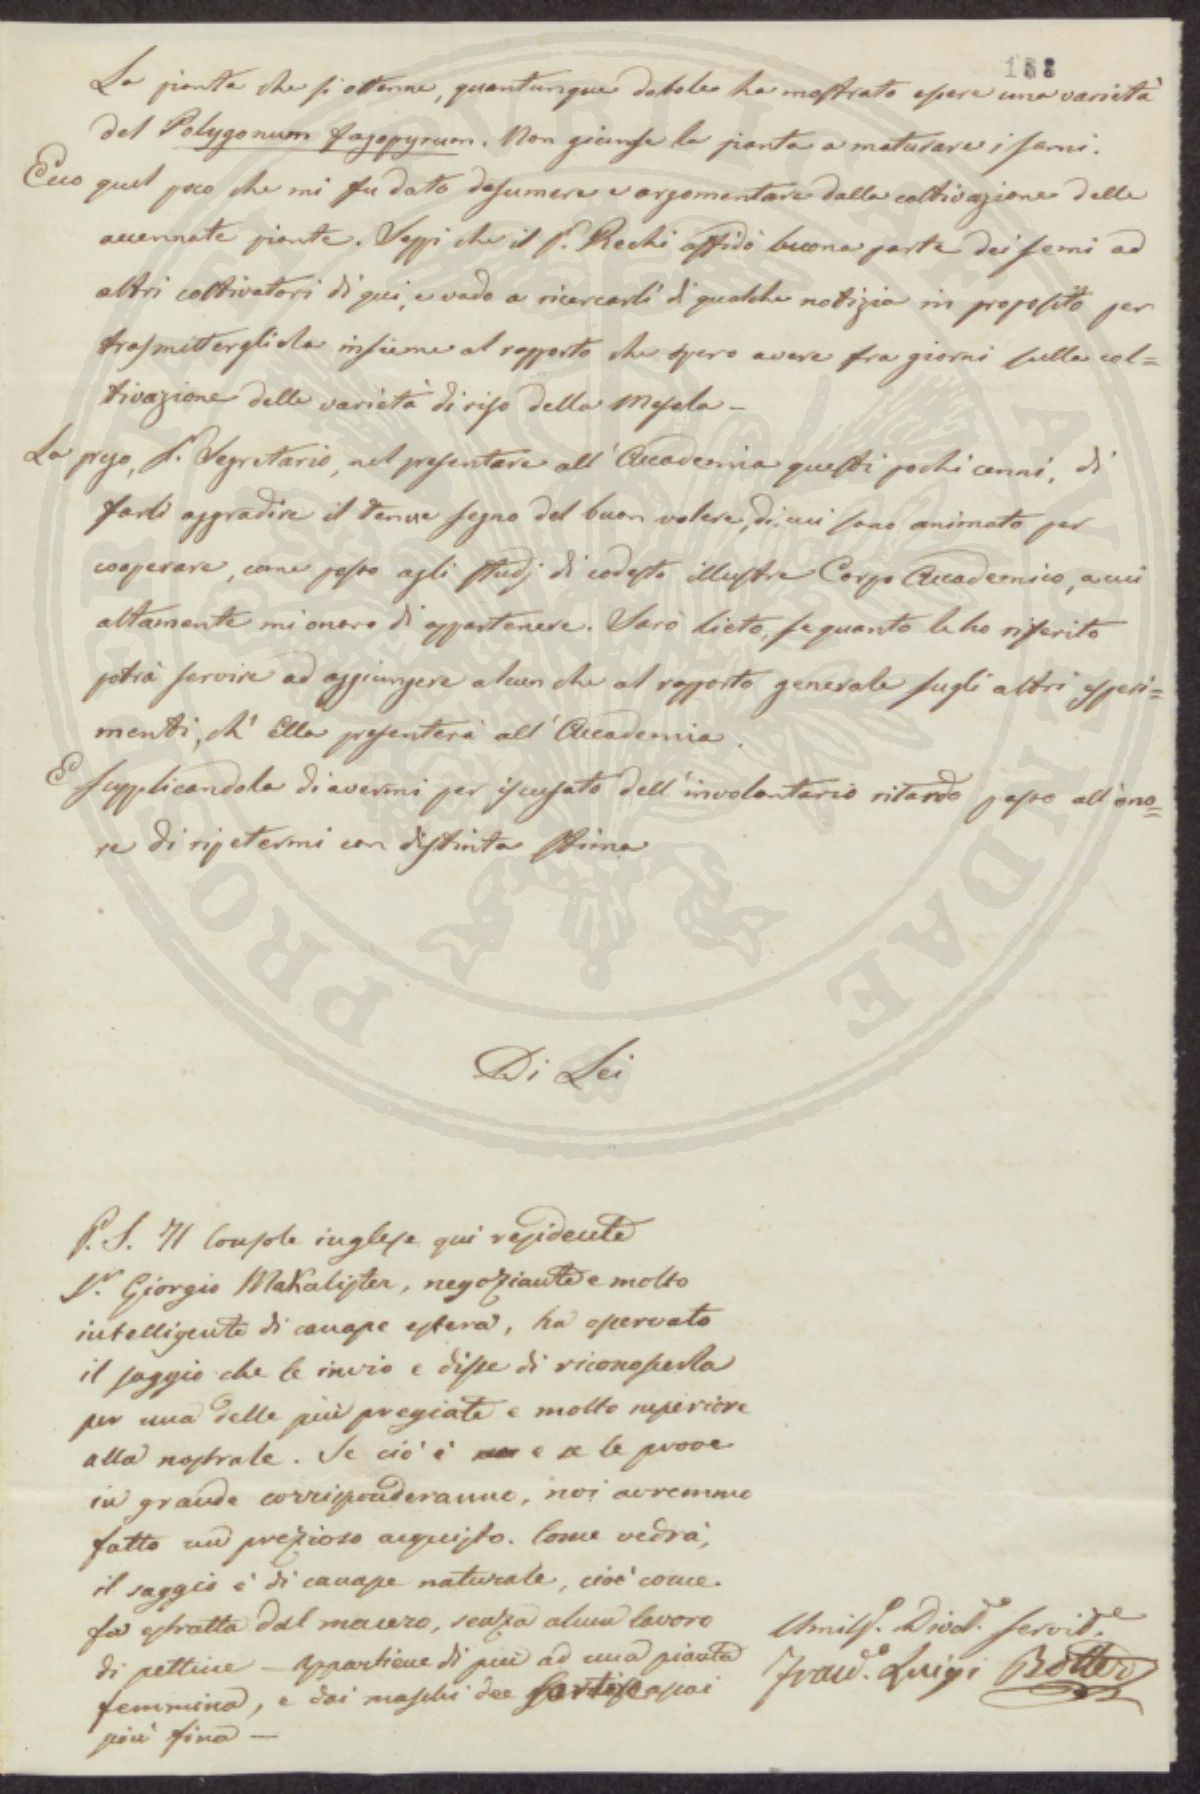 188
La pianta che si ottenne, quantunque debole ha mostrato essere una varietà
del Polygonum fagopyrum. Non giunse la pianta a maturare i semi.
Ecco quel poco che mi fu dato desumere e argomentare dalla coltivazione delle
accennate piante. Seppi che il S. Recchi affidò buona parte dei semi ad
altri coltivatori di qui, e vado a ricercarli di qualche notizia in proposito per
trasmettergliela insieme al rapporto che spero avere fra giorni sulla col=
tivazione delle varietà di riso della Mesola –
La prego, S. Segretario, nel presentare all' Accademia questi pochi cenni, di
farli aggradire il tenue segno del buon volere, di cui sono animato per
cooperare, come posso agli studj di codesto illustre Corpo Accademico, a cui
altamente mi onoro di appartenere. Sarò lieto, se quanto le ho riferito
potrà servire ad aggiungere alcun che al rapporto generale sugli altri esperi=
menti, ch' Ella presenterà all' Accademia.
E supplicandola di avermi per iscusato dell' involontario ritardo passo all' ono=
re di ripetermi con distinta stima
Di Lei
P. S. Il Console inglese qui residente
Sr. Giorgio MaKalister, negoziante e molto
intelligente di canape estera, ha osservato
il saggio che le invio e disse di riconoscerla
per una delle più pregiate e molto superiore
alla nostrale. Se ciò è e se le prove
in grande corrisponderanno, noi avremmo
fatto un prezioso acquisto. Come vedrà,
il saggio è di canape naturale, cioè come
fu estratta dal macero, senza alcun lavoro
di pettine – Appartiene di più ad una pianta
femmina, e dai maschi dee sortire assai
più fina –
Umilss. Divot. Servid.e
Franc.o Luigi Botter
PROVIDENTIAE AVGVSTAE